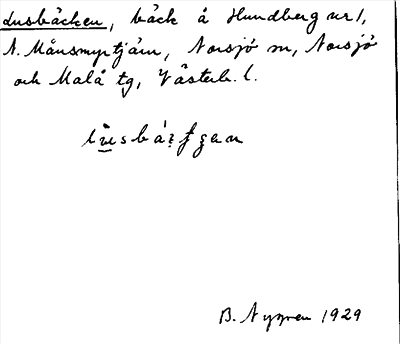 Lusbäcken, bäck å Hundberg nr 1,
N. Månsmyrtjärn, Norsjö sn, Norsjö
och Malå tg, Västerb. l.
B. Nygren 1929